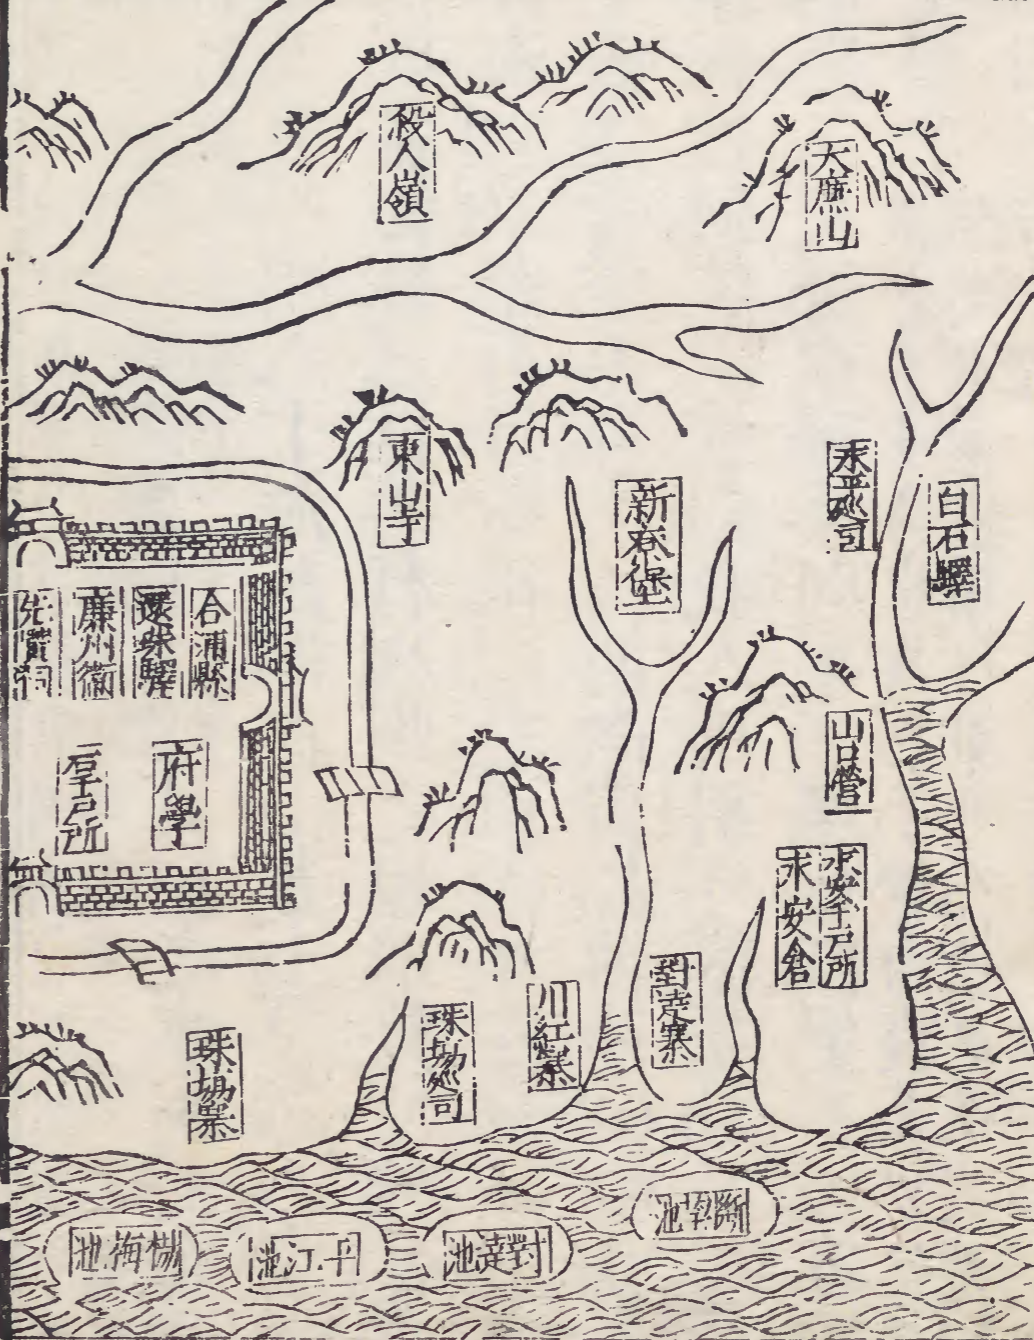 殺人嶺
大廉山
東山寺
新寮堡
永平巡司
白石驛
合浦縣
還珠驛
廉州衞
先賢祠
府學
山口營
永安千戶所
永安倉
珠場巡司
川江寨
對達寨
珠場寨
斷望池
對達池
平江池
楊梅池